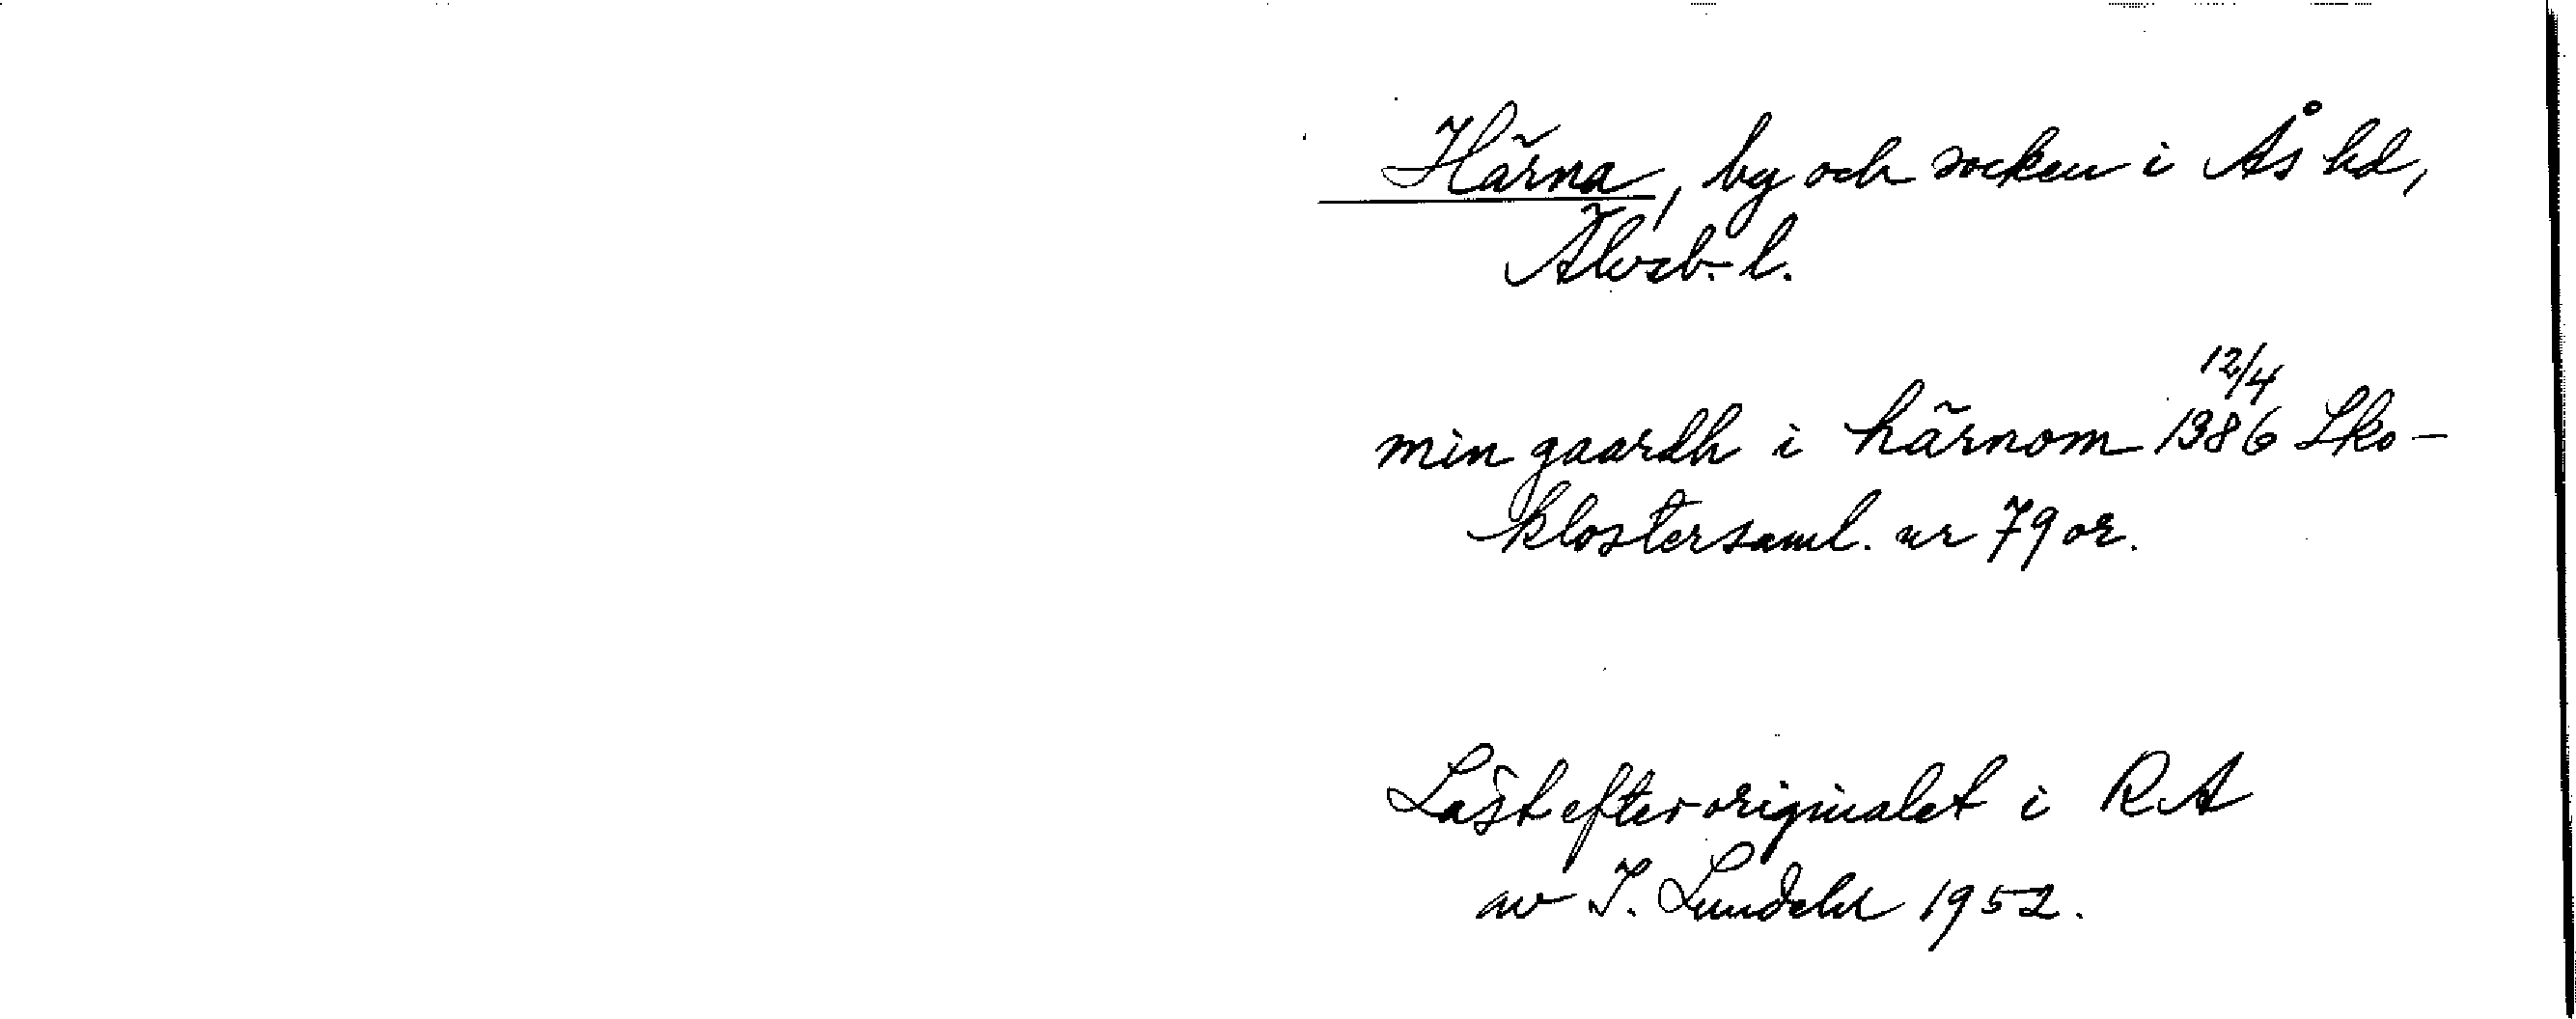 Härna, by och socken i Ås hd,
Älvsb. l.
12/4
min gaardh i härnom 1386 Sko-
klostersaml. nr 79 or.
Läst efter originalet i RA
av I. Lundahl 1952.